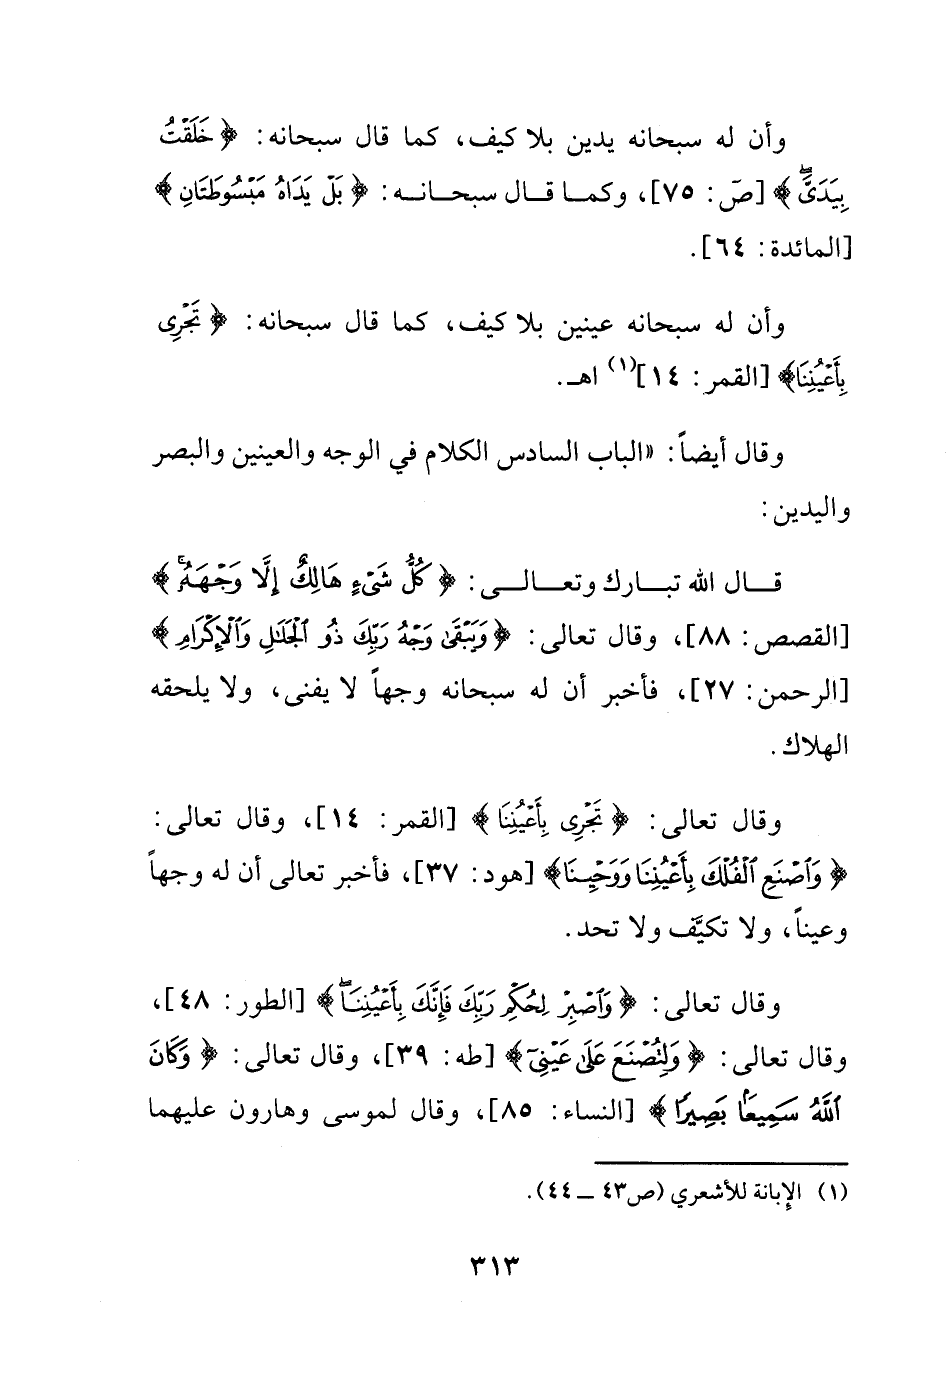 وأن له سبحانه يدين بلا كيف، كما قال سبحانه: ﴿ خَلَقْتُ
بِيَدَيَّ ﴾ [صَ: ٧٥]، وكمـا قـال سبحـانـه: ﴿ بَلْ يَدَاهُ مَبْسُوطَتَانِ ﴾
[المائدة: ٦٤].
وأن له سبحانه عينين بلا كيف، كما قال سبحانه: ﴿ تَجْرِي
بِأَعْيُنِنَا﴾ [القمر: ١٤](١) اهـ.
وقال أيضاً: «الباب السادس الكلام في الوجه والعينين والبصر
واليدين:
قـال الله تبـارك وتعـالـى: ﴿ كُلُّ شَيْءٍ هَالِكٌ إِلَّا وَجْهَهُ ﴾
[القصص: ٨٨]، وقال تعالى: ﴿ وَيَبْقَىٰ وَجْهُ رَبِّكَ ذُو ٱلْجَلَٰلِ وَٱلْإِكْرَامِ ﴾
[الرحمن: ٢٧]، فأخبر أن له سبحانه وجهاً لا يفنى، ولا يلحقه
الهلاك.
وقال تعالى: ﴿ تَجْرِي بِأَعْيُنِنَا ﴾ [القمر: ١٤]، وقال تعالى:
﴿ وَٱصْنَعِ ٱلْفُلْكَ بِأَعْيُنِنَا وَوَحْيِنَا﴾ [هود: ٣٧]، فأخبر تعالى أن له وجهاً
وعيناً، ولا تكيَّف ولا تحد.
وقال تعالى: ﴿ وَٱصْبِرْ لِحُكْمِ رَبِّكَ فَإِنَّكَ بِأَعْيُنِنَا ﴾ [الطور: ٤٨]،
وقال تعالى: ﴿ وَلِتُصْنَعَ عَلَىٰ عَيْنِيٓ ﴾ [طه: ٣٩]، وقال تعالى: ﴿ وَكَانَ
ٱللَّهُ سَمِيعًا بَصِيرًا ﴾ [النساء: ٨٥]، وقال لموسى وهارون عليهما
(١) الإبانة للأشعري (ص٤٣ ــ ٤٤).
٣١٣